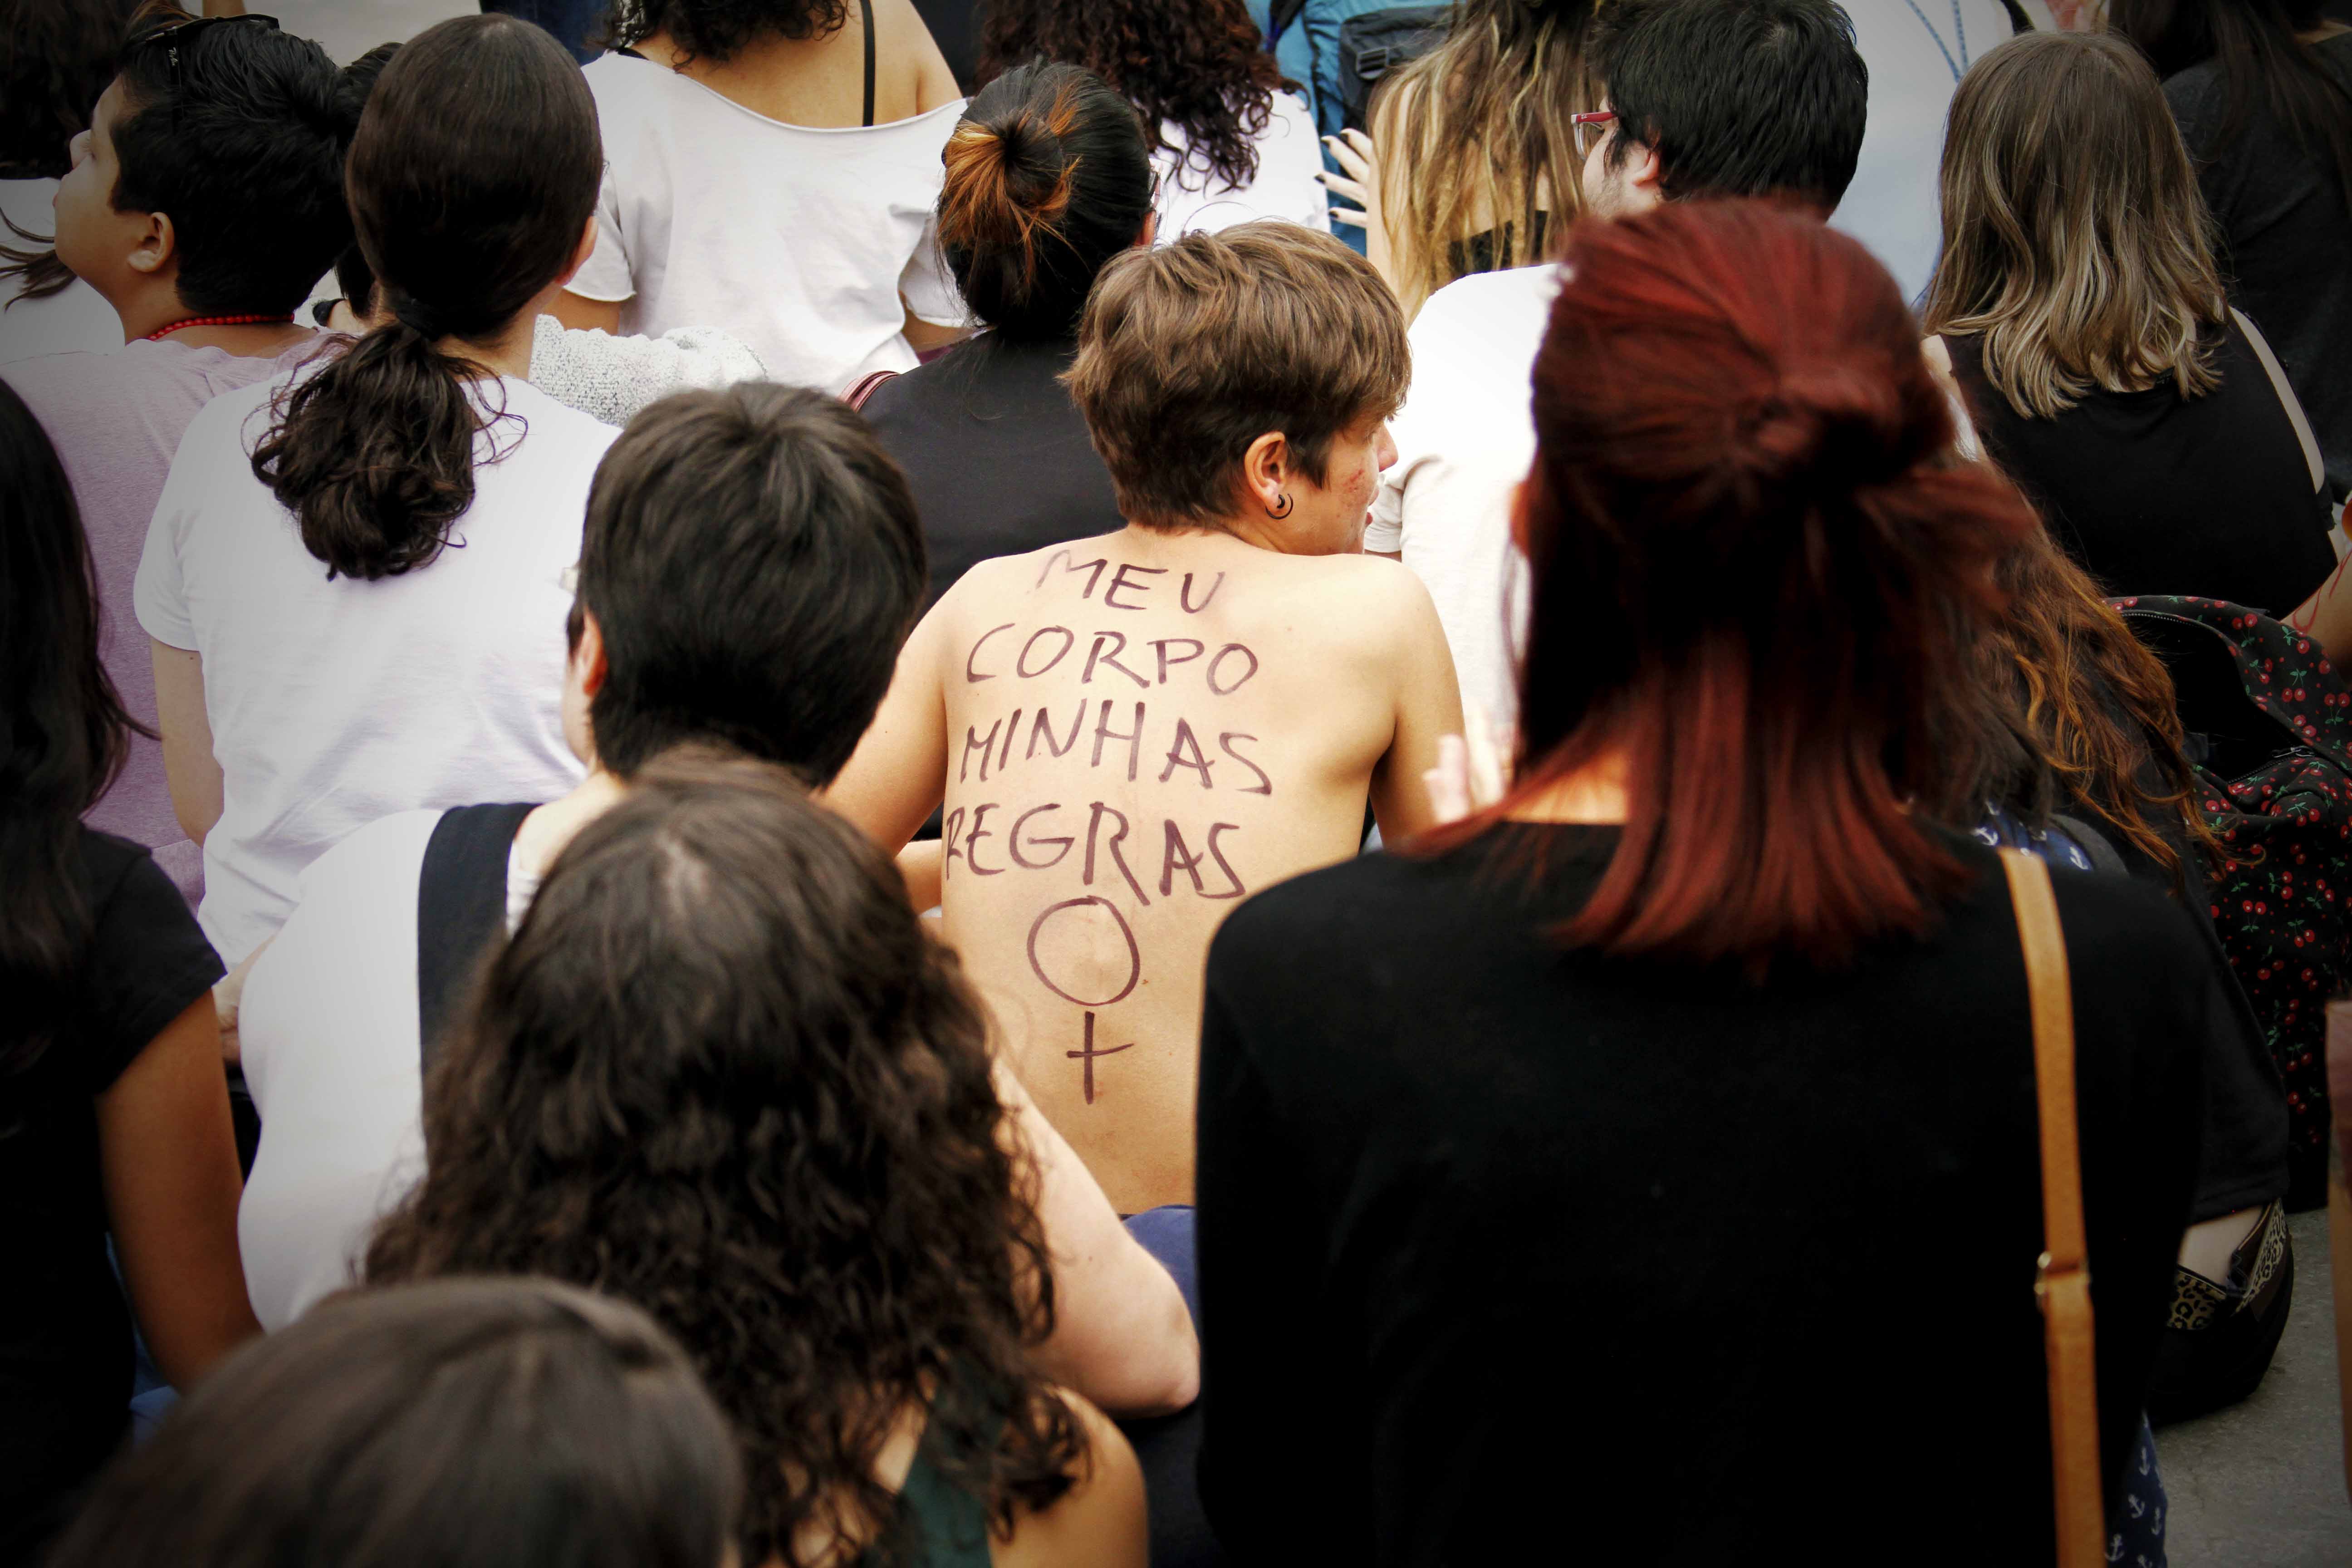 MEU
CORPO
MINHAS
REGRAS